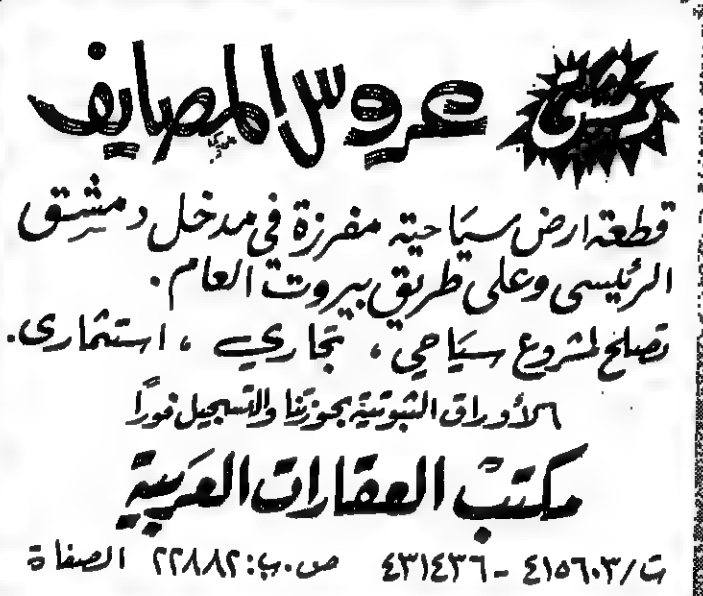 دمشق عروس المصايف
قطعة ارض سياحية مفرزة في مدخل دمشق
الرئيسى وعلى طريق بيروت العام .
تصلح لمشروع سياحي ، تجاري ، استثمارى .
الأوراق الثبوتية بحوزتنا والتسجيل فورًا
مكتب العقارات العربية
ت/٤١٥٦٠٣ - ٤٣١٤٣٦ ص.ب: ٢٢٨٨٢ الصفاة